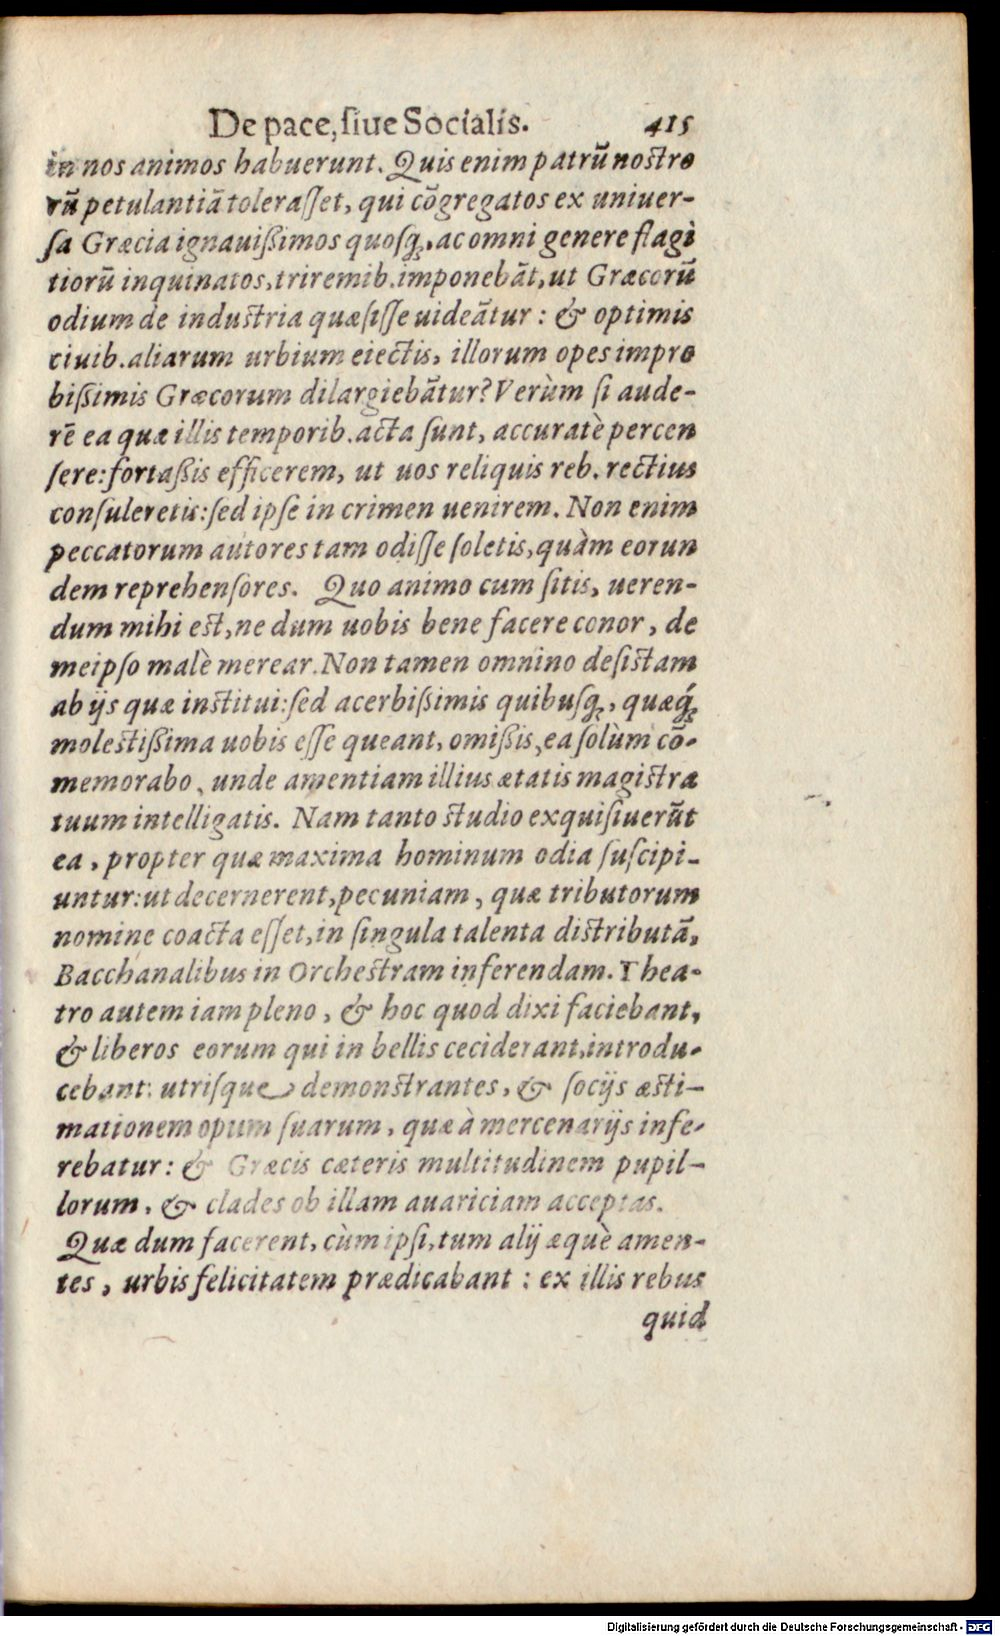 De pace, ſiue Socialis. 415
in nos animos habuerunt. Quis enim patrū noſtro
rū petulantiā toleraſſet, qui cōgregatos ex uniuer-
ſa Græcia ignauißimos quoſq;, ac omni genere flagi
tiorū inquinatos, triremib. imponebāt, ut Græcorū
odium de induſtria quæſiſſe uideātur: & optimis
ciuib. aliarum urbium eiectis, illorum opes impro
bißimis Græcorum dilargiebātur? Verùm ſi aude-
rē ea quæ illis temporib. acta ſunt, accuratè percen
ſere: fortaßis efficerem, ut uos reliquis reb. rectius
conſuleretis: ſed ipſe in crimen uenirem. Non enim
peccatorum autores tam odiſſe ſoletis, quàm eorun
dem reprehenſores. Quo animo cum ſitis, ueren-
dum mihi eſt, ne dum uobis bene facere conor, de
meipſo malè merear. Non tamen omnino deſiſtam
ab ijs quæ inſtitui: ſed acerbißimis quibuſq;, quæq́;
moleſtißima uobis eſſe queant, omißis, ea ſolùm cō-
memorabo, unde amentiam illius ætatis magiſtra
tuum intelligatis. Nam tanto ſtudio exquiſiuerūt
ea, propter quæ maxima hominum odia ſuſcipi-
untur: ut decernerent, pecuniam, quæ tributorum
nomine coacta eſſet, in ſingula talenta diſtributā,
Bacchanalibus in Orcheſtram inferendam. Thea-
tro autem iam pleno, & hoc quod dixi faciebant,
& liberos eorum qui in bellis ceciderant, introdu-
cebant: utriſque demonſtrantes, & ſocijs æſti-
mationem opum ſuarum, quæ à mercenarijs infe-
rebatur: & Græcis cæteris multitudinem pupil-
lorum, & clades ob illam auariciam acceptas.
Quæ dum facerent, cùm ipſi, tum alij æquè amen-
tes, urbis felicitatem prædicabant: ex illis rebus
quid
Digitalisierung gefördert durch die Deutsche Forschungsgemeinschaft - DFG